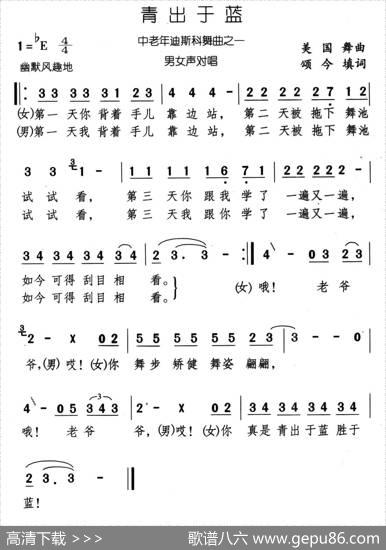 青出于蓝
1=♭E 4/4
中老年迪斯科舞曲之一
男女声对唱
美国舞曲
颂今填词
幽默风趣地
33 33 31 23 4 4 4 - 22 22 27 12
(女)第一天你背着手儿靠边站, 第二天被拖下舞池
(男)第一天我背着手儿靠边站, 第二天被拖下舞池
3 3 3 - 11 11 16 71 2 22 2 22
试试看, 第三天你跟我学了一遍又一遍,
试试看, 第三天我跟你学了一遍又一遍,
34 34 34 34 2 3. 3 - 4 - 03 23
如今可得刮目相看。 (女)哦! 老爷
如今可得刮目相看。
2 - X 02 55 55 55 55 23 2 - -
爷,(男)哎!(女)你舞步矫健舞姿翩翩,
4 - 05 343 2 - X 02 34 34 34 34
哦! 老爷爷,(男)哎!(女)你真是青出于蓝胜于
2 3. 3 -
蓝!
高清下载 >>>
歌谱八六 www.gepu86.com